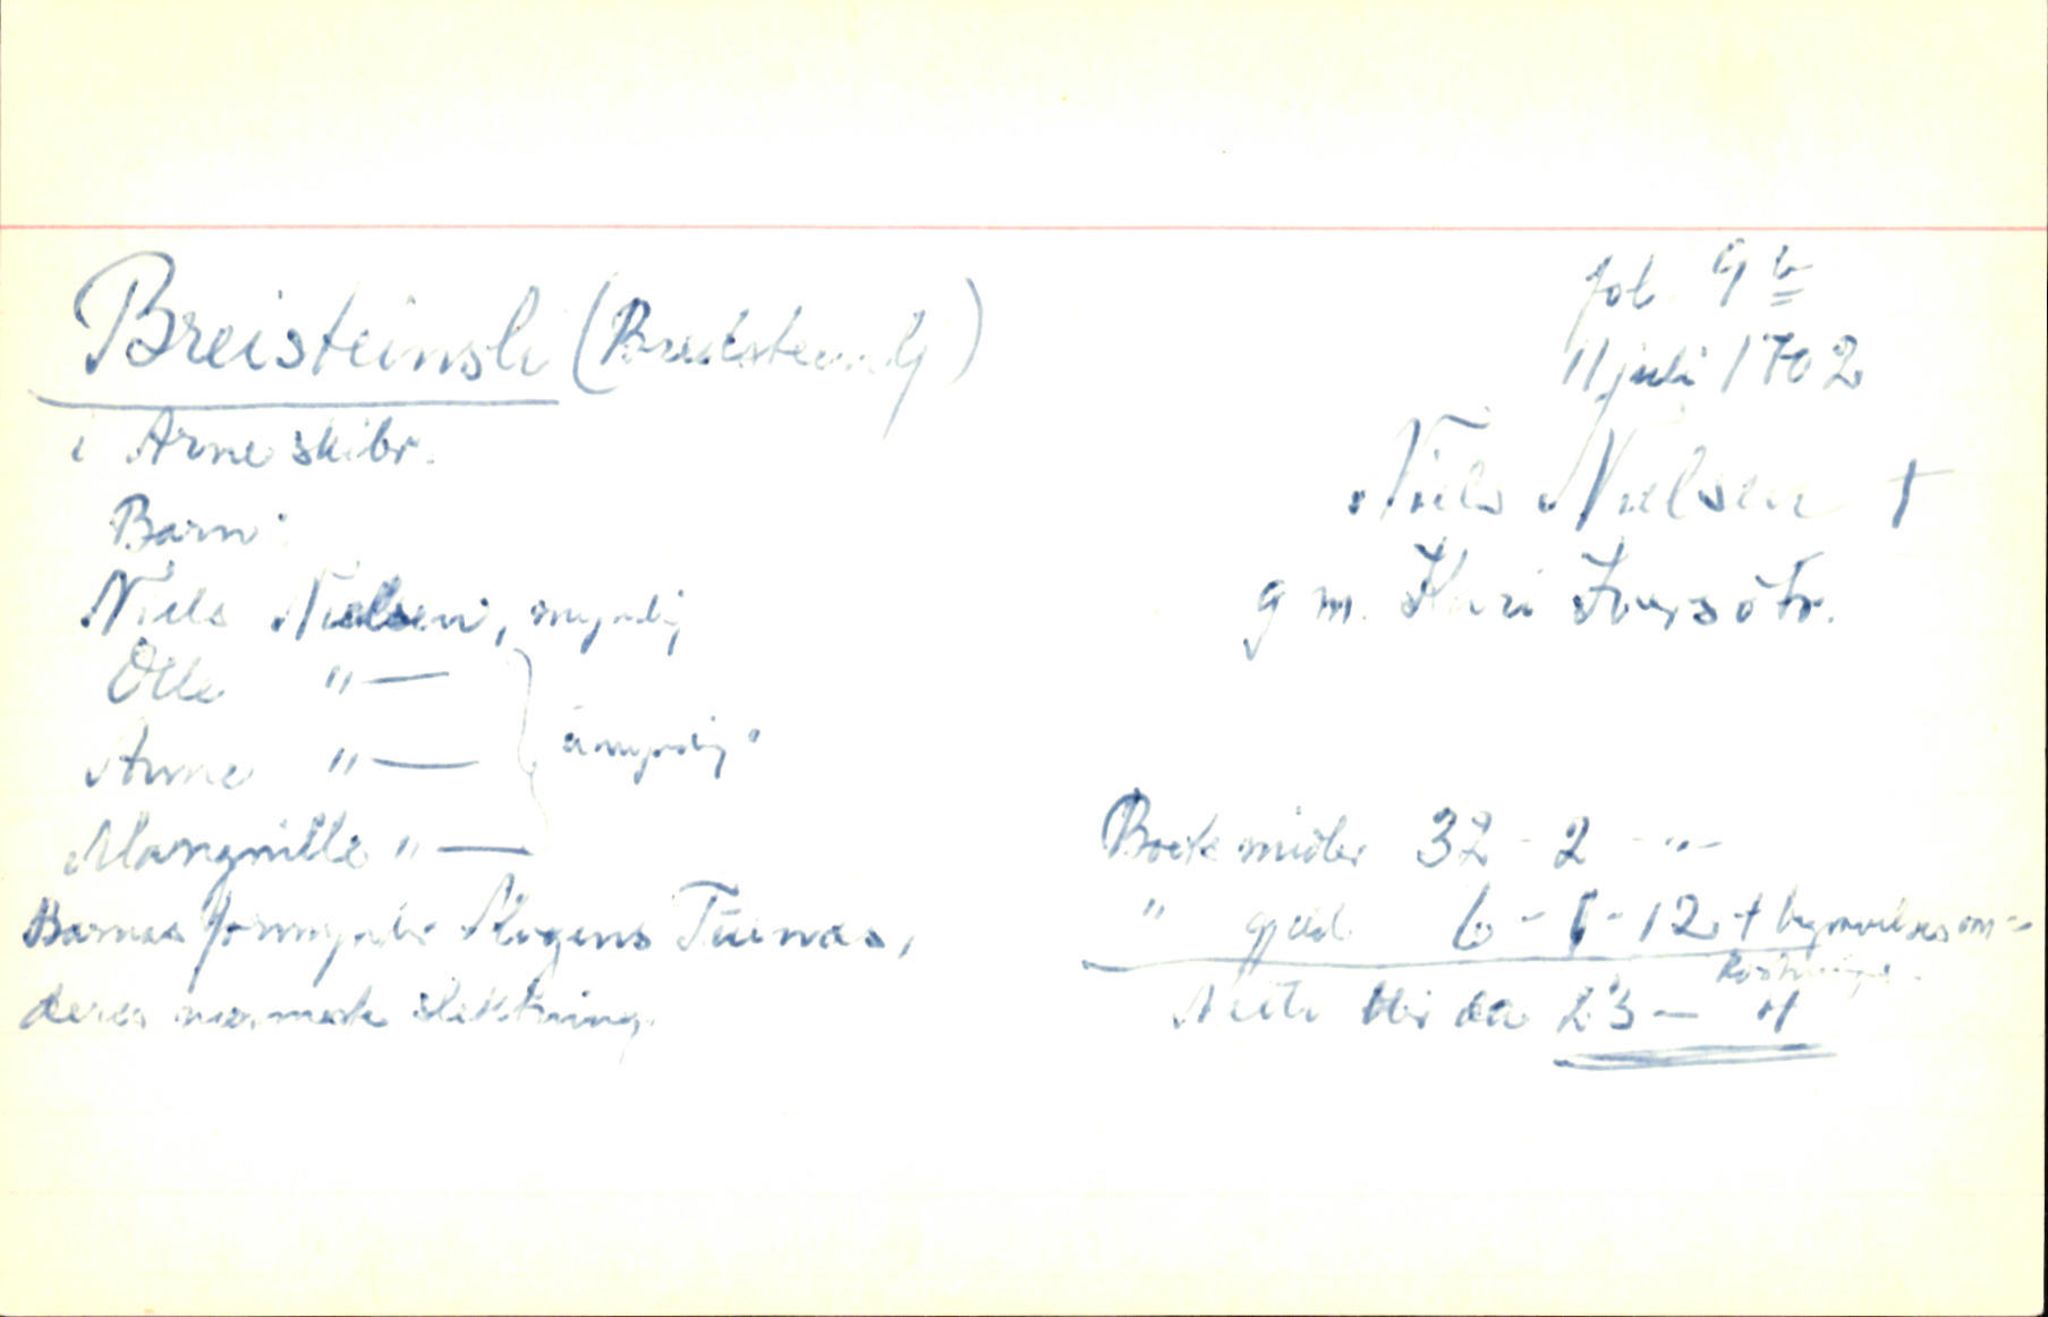 Breisteinsli (Bredsteinsly)
i Arne skibr.
Barn:
Niels Nielsen, myndig
Olle " —
Arne " — umyndig
Marganille " —
Barnas formynder Mogens Tuenæs,
deres nærmeste slektning.
fol. 9 b
11 juli 1702
Niels Nielsen †
g m. Kari Iversdtr.
Boets midler 32 - 2 - " -
" gjeld 6 - 1 - 12 + begravelsesom-
kostninger.
Netto blir da 23 —